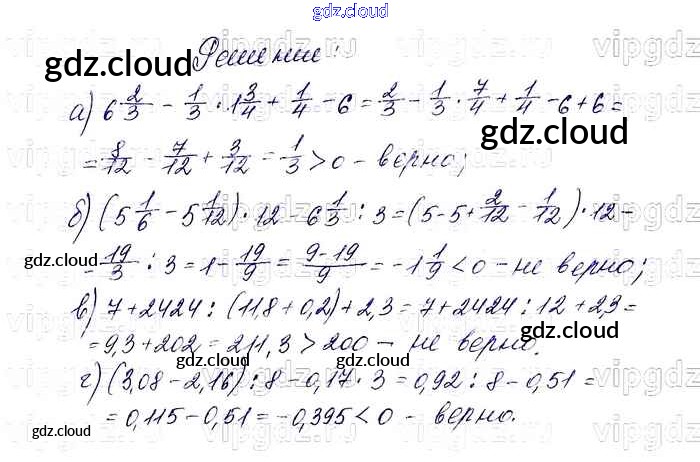 gdz.cloud
Решение:
gdz.cloud
а) 6 2/3 - 1/3 · 1 3/4 + 1/4 - 6 = 2/3 - 1/3 · 7/4 + 1/4 - 6 + 6 =
gdz.cloud
= 8/12 - 7/12 + 3/12 = 1/3 > 0 - верно;
б) (5 1/6 - 5 1/12) · 12 - 6 1/3 : 3 = (5 - 5 + 2/12 - 1/12) · 12 -
gdz.cloud
- 19/3 : 3 = 1 - 19/9 = 9-19/9 = -1 1/9 < 0 - не верно;
gdz.cloud
в) 7 + 2424 : (11,8 + 0,2) + 2,3 = 7 + 2424 : 12 + 2,3 =
gdz.cloud
= 9,3 + 202 = 211,3 > 200 - не верно.
gdz.cloud gdz.cloud
г) (3,08 - 2,16) : 8 - 0,17 · 3 = 0,92 : 8 - 0,51 =
= 0,115 - 0,51 = -0,395 < 0 - верно.
gdz.cloud